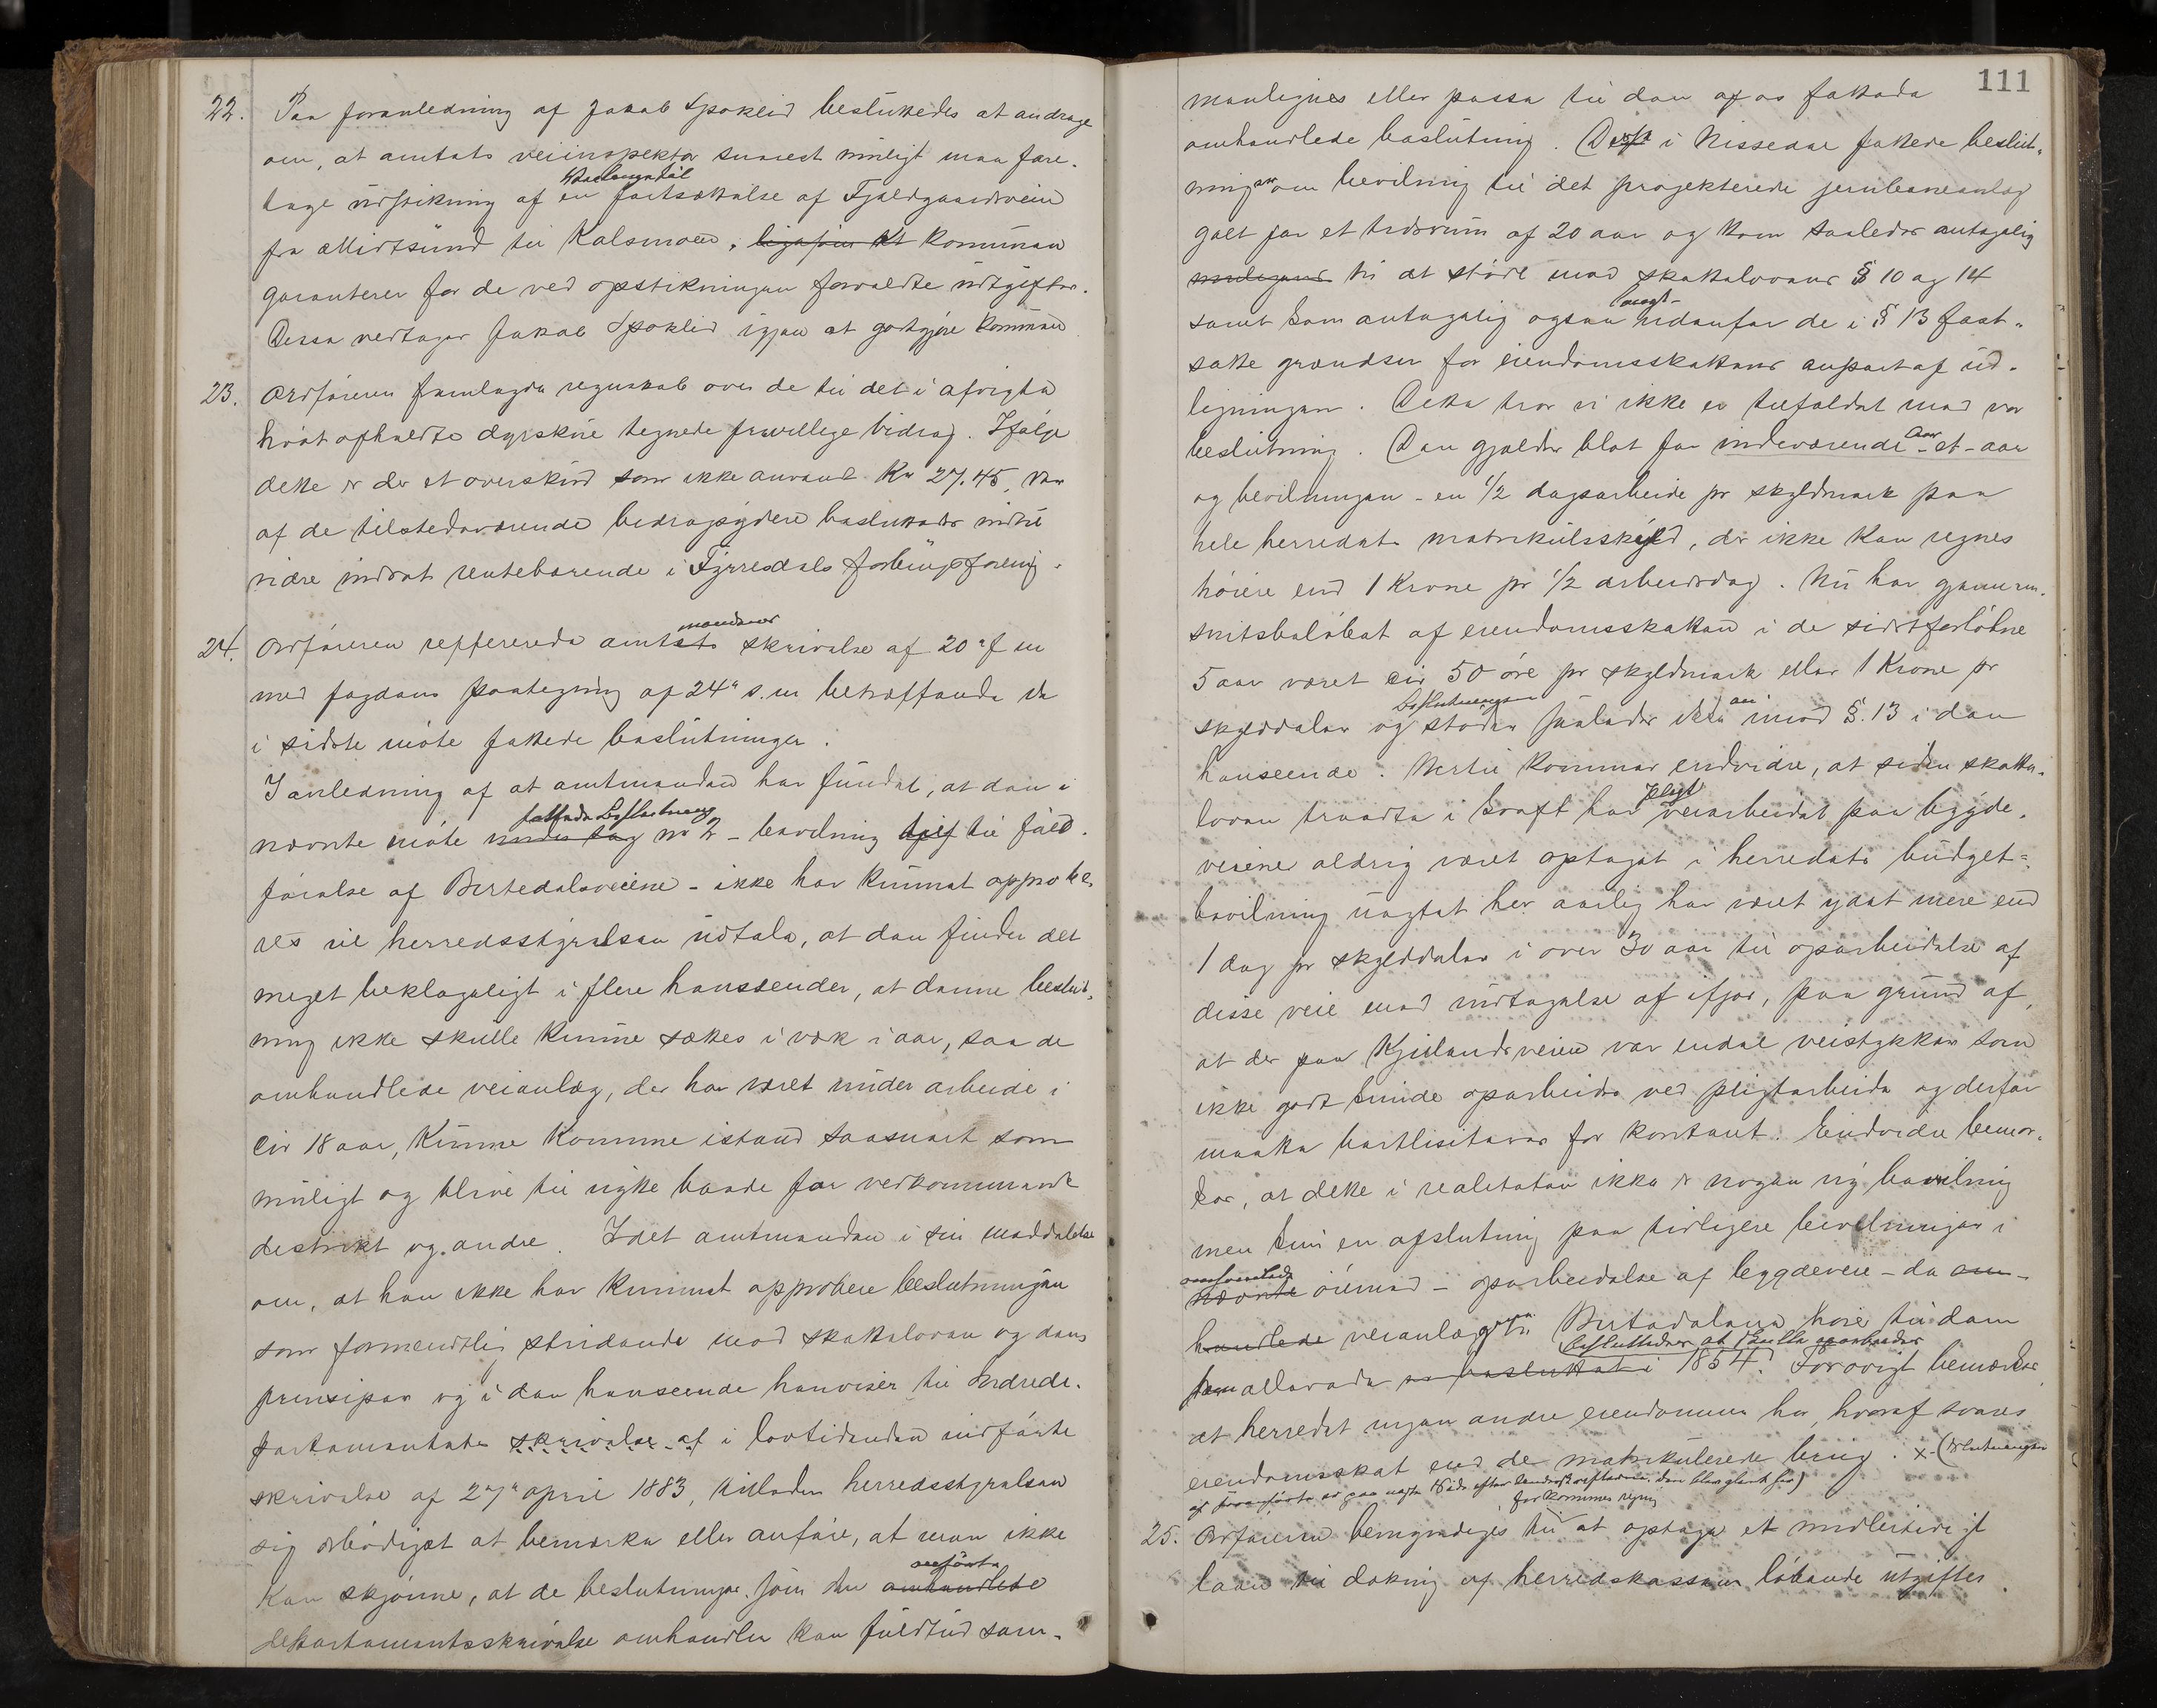 22. Paa foranledning af Jakob Spokelid besluttedes at andrage
om, at amtets veiinspektør snarest muligt maa fore-
tage udstikning af en fortsættelse af Fjeldgaardsveien
fra Midtsund til Kalsmoen, kommunen
garanterer for de ved opstikningen forvoldte udgifter.
Disse vedtager Jakob Spokelid igjen at godtgjøre kommunen
23. Ordføreren fremlagde regnskab over de til det i afvigte
høst afholdte dyrskue tegnede frivillige bidrag. Ifølge
dette er der et overskud som ikke anvendt Kr 27.45, der
af de tilstedeværende bidragsydere besluttedes indtil
videre indsat rentebærende i Fyrresdals forbrugsforening.
24. Ordføreren reffererede amtets mandens skrivelse af 20de f m
med fogdens paategning af 24de s.m. betræffende de
i sidste møte fattede beslutninger.
I anledning af at amtmanden har fundet, at den i
nævnte møte under sag fattede Beslutning no 2 - bevilning til fuld-
førelse af Birtedalsveiene - ikke har kunnet approbe-
res vil herredsstyrelsen udtale, at den finder det
meget beklageligt i flere henseender, at denne beslut-
ning ikke skulle kunne sættes i værk i aar, saa de
omhandlede veianlæg, der har været under arbeide i
cir 18 aar, kunne komme istand saasnart som
muligt og blive til nytte baade for vedkommende
distrikt og andre. Idet amtmanden i sin meddelelse
om, at han ikke har kunnet approbere beslutningen
som formentlig stridende mod skatteloven og dens
prinsiper og i den henseende henviser til Indrede-
partementets skrivelse af i lovtidenden indførte
skrivelse af 27de april 1883, tillader herredsstyrelsen
sig ærbødigst at bemærke eller anføre, at man ikke
kan skjønne, at de beslutninger som den omhandlede anførte
departementsskrivelse omhandler kan fuldtud sam-
111
menlignes eller passe til den af os fattede
omhandlede beslutning. Den i Nissedal fattede beslut-
ning om bevilning til det projekterede jernbaneanlæg
galt for et tidsrum af 20 aar og kom saaledes antagelig
til at støde mod skattelovens § 10 og 14
samt kom antagelig ogsaa udenfor de i § 13 fast-
satte grændser for eiendomsskattens anpart af ud-
ligningen. Dette tror vi ikke er tilfældet med vor
beslutning. Den gjælder blot for indeværende Aar - et - aar
og bevilningen - en 1/2 dagsarbeide pr skyldmark paa
hele herredets matrikulskyld, der ikke kan regnes
høiere end 1 Krone pr 1/2 arbeidsdag. Nu har gjennem-
snitsbeløbet af eiendomsskatten i de sidstforløbne
5 aar været cir 50 øre pr skyldmark eller 1 Krone pr
skylddaler og Beslutningen støder saaledes ikke an imod §.13 i den
henseende. Hertil kommer endvidere, at siden skatte-
loven traadte i kraft har pligt veiarbeidet paa bygde-
veiene aldrig været optaget i herredets budget-
bevilning uagtet her aarlig har været ydet mere end
1 dag pr skylddaler i over 30 aar til oparbeidelse af
disse veie med undtagelse af ifjor, paa grund af,
at der paa Kjeilandsveien var endel veistykker som
ikke godt kunde oparbeides ved pligtarbeide og derfor
maatte bortlisiteres for kontant. Endvidere bemær-
kes, at dette i realiteten ikke er nogen ny bevilning
men kun en afslutning paa tidligere bevilninger i
omhandlede nævnte øiemed - oparbeidelse af bygdeveie - da om-
handlede veianlæg Birtedalene hører til dem
som allerede besluttedes at skulle oparbeides er besluttet i 1854. Forøvrigt bemærkes
at herredet ingen andre eiendomme har, hvoraf svares
eiendomsskat end de matrikulerede brug. x-(Slutningen
af
for kommunens regning
25. Ordføreren bemyndiges til at optage et midlertidigt
laan til dækning af herredskassens løbende utgifter